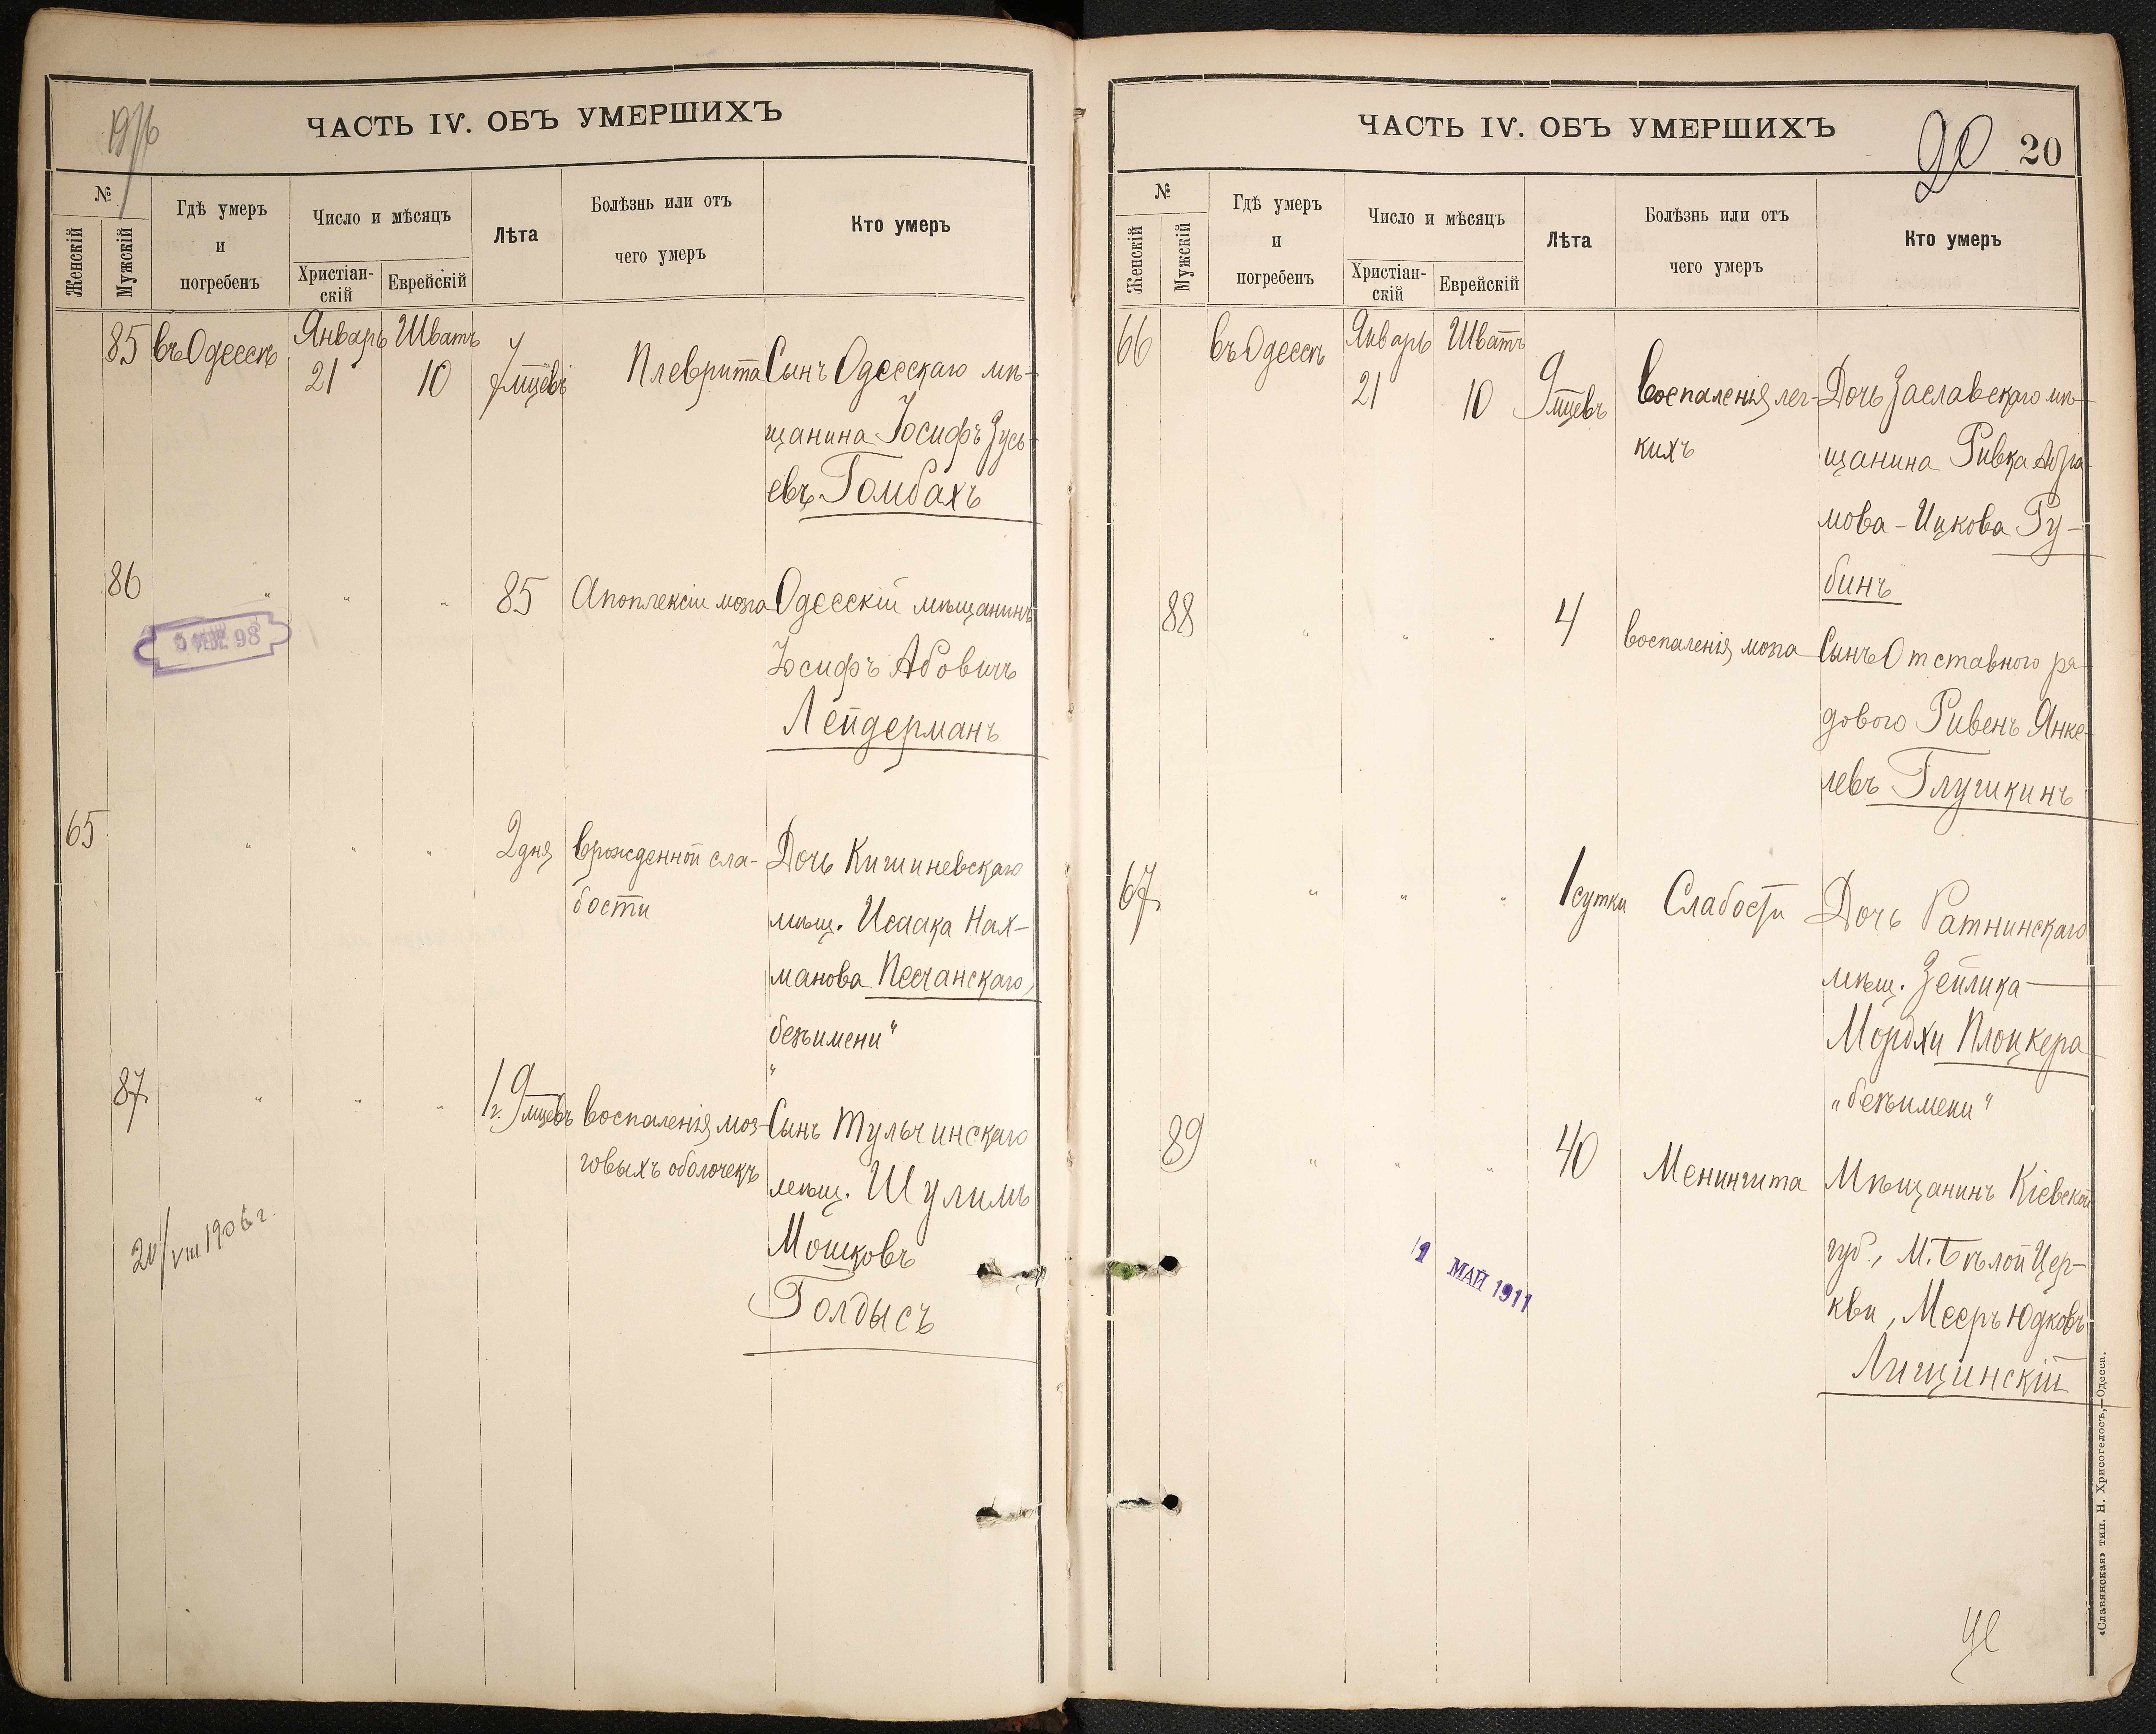 ЧАСТЬ IV. ОБЪ УМЕРШИХЪ
№
Женскій
Мужскій
Гдѣ умеръ
и
погребенъ
Число и мѣсяцъ
Христіан-
скій
Еврейскій
Лѣта
Болѣзнь или отъ
чего умеръ
Кто умеръ
85 въ Одессѣ Январь 21 Шватъ 10 7 мцевъ Плеврита Сынъ Одесскаго мѣ-
щанина Іосифъ Зусь-
евъ Гомбахъ
86 " " " 85 Апоплексіи мозга Одесскій мѣщанинъ
Іосифъ Абовичъ
Лейдерманъ
65 " " " 2 дня врожденной сла- Дочь Кишиневскаго
бости мѣщ. Исаака Нах-
манова Песчанскаго,
безъимени"
87 " " " 1 г. 9 мцевъ воспаленія моз- Сынъ Тульчинскаго
говыхъ оболочекъ мѣщ. Шулимъ
Мошковъ
Голдысъ
20/VIII 1906 г.
ЧАСТЬ IV. ОБЪ УМЕРШИХЪ
20 20
№
Женскій
Мужскій
Гдѣ умеръ
и
погребенъ
Число и мѣсяцъ
Христіан-
скій
Еврейскій
Лѣта
Болѣзнь или отъ
чего умеръ
Кто умеръ
66 въ Одессѣ Январь 21 Шватъ 10 9 мцевъ воспаленія лег- Дочь Заславскаго мѣ-
кихъ щанина Ривка Абра-
мова-Ицкова Ру-
бинъ
88 " " " 4 воспаленія мозга Сынъ Отставного ря-
дового Ривенъ Янке-
левъ Глушкинъ
67 " " " 1 сутки Слабости Дочь Ратнинскаго
мѣщ. Зейлика-
Мордхи Плоцкера
"безъимени"
89 " " " 40 Менингита Мѣщанинъ Кіевской
губ., М. Бѣлой Цер-
кви, Мееръ Юдковъ
Лищинскій
МАЙ 1911
«Славянская» тип. Н. Хрисогелосъ,—Одесса.